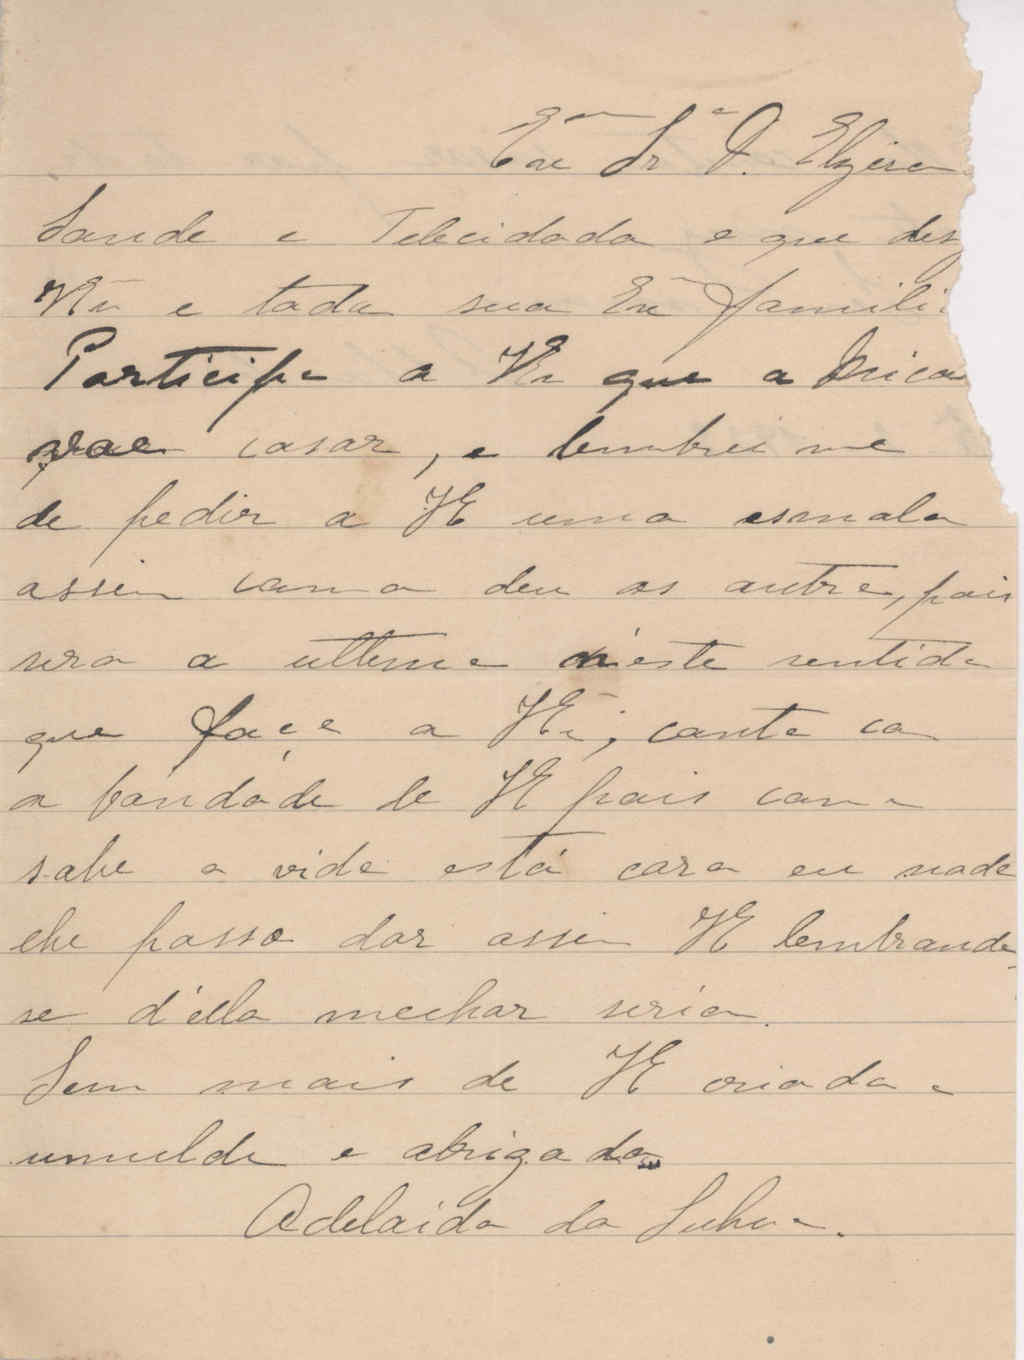 Exma Sra D. Elzira
Saude e Felicidada e que des
VExa e toda sua Exma famili
Participo a VExa que a Mica
vae casar, e lembrei me
de pedir a VE uma esmola
assim como deu os outro, pois
sera a ultima n'este sentido
que faço a VExa; conto co
a bondade de VE pois como
sabe a vida está cara eu nada
lhe posso dar assim VE lembrando
se d'ella melhor seria.
Sem mais de VE criada e
umulde e obrigada
Adelaida da Silva.